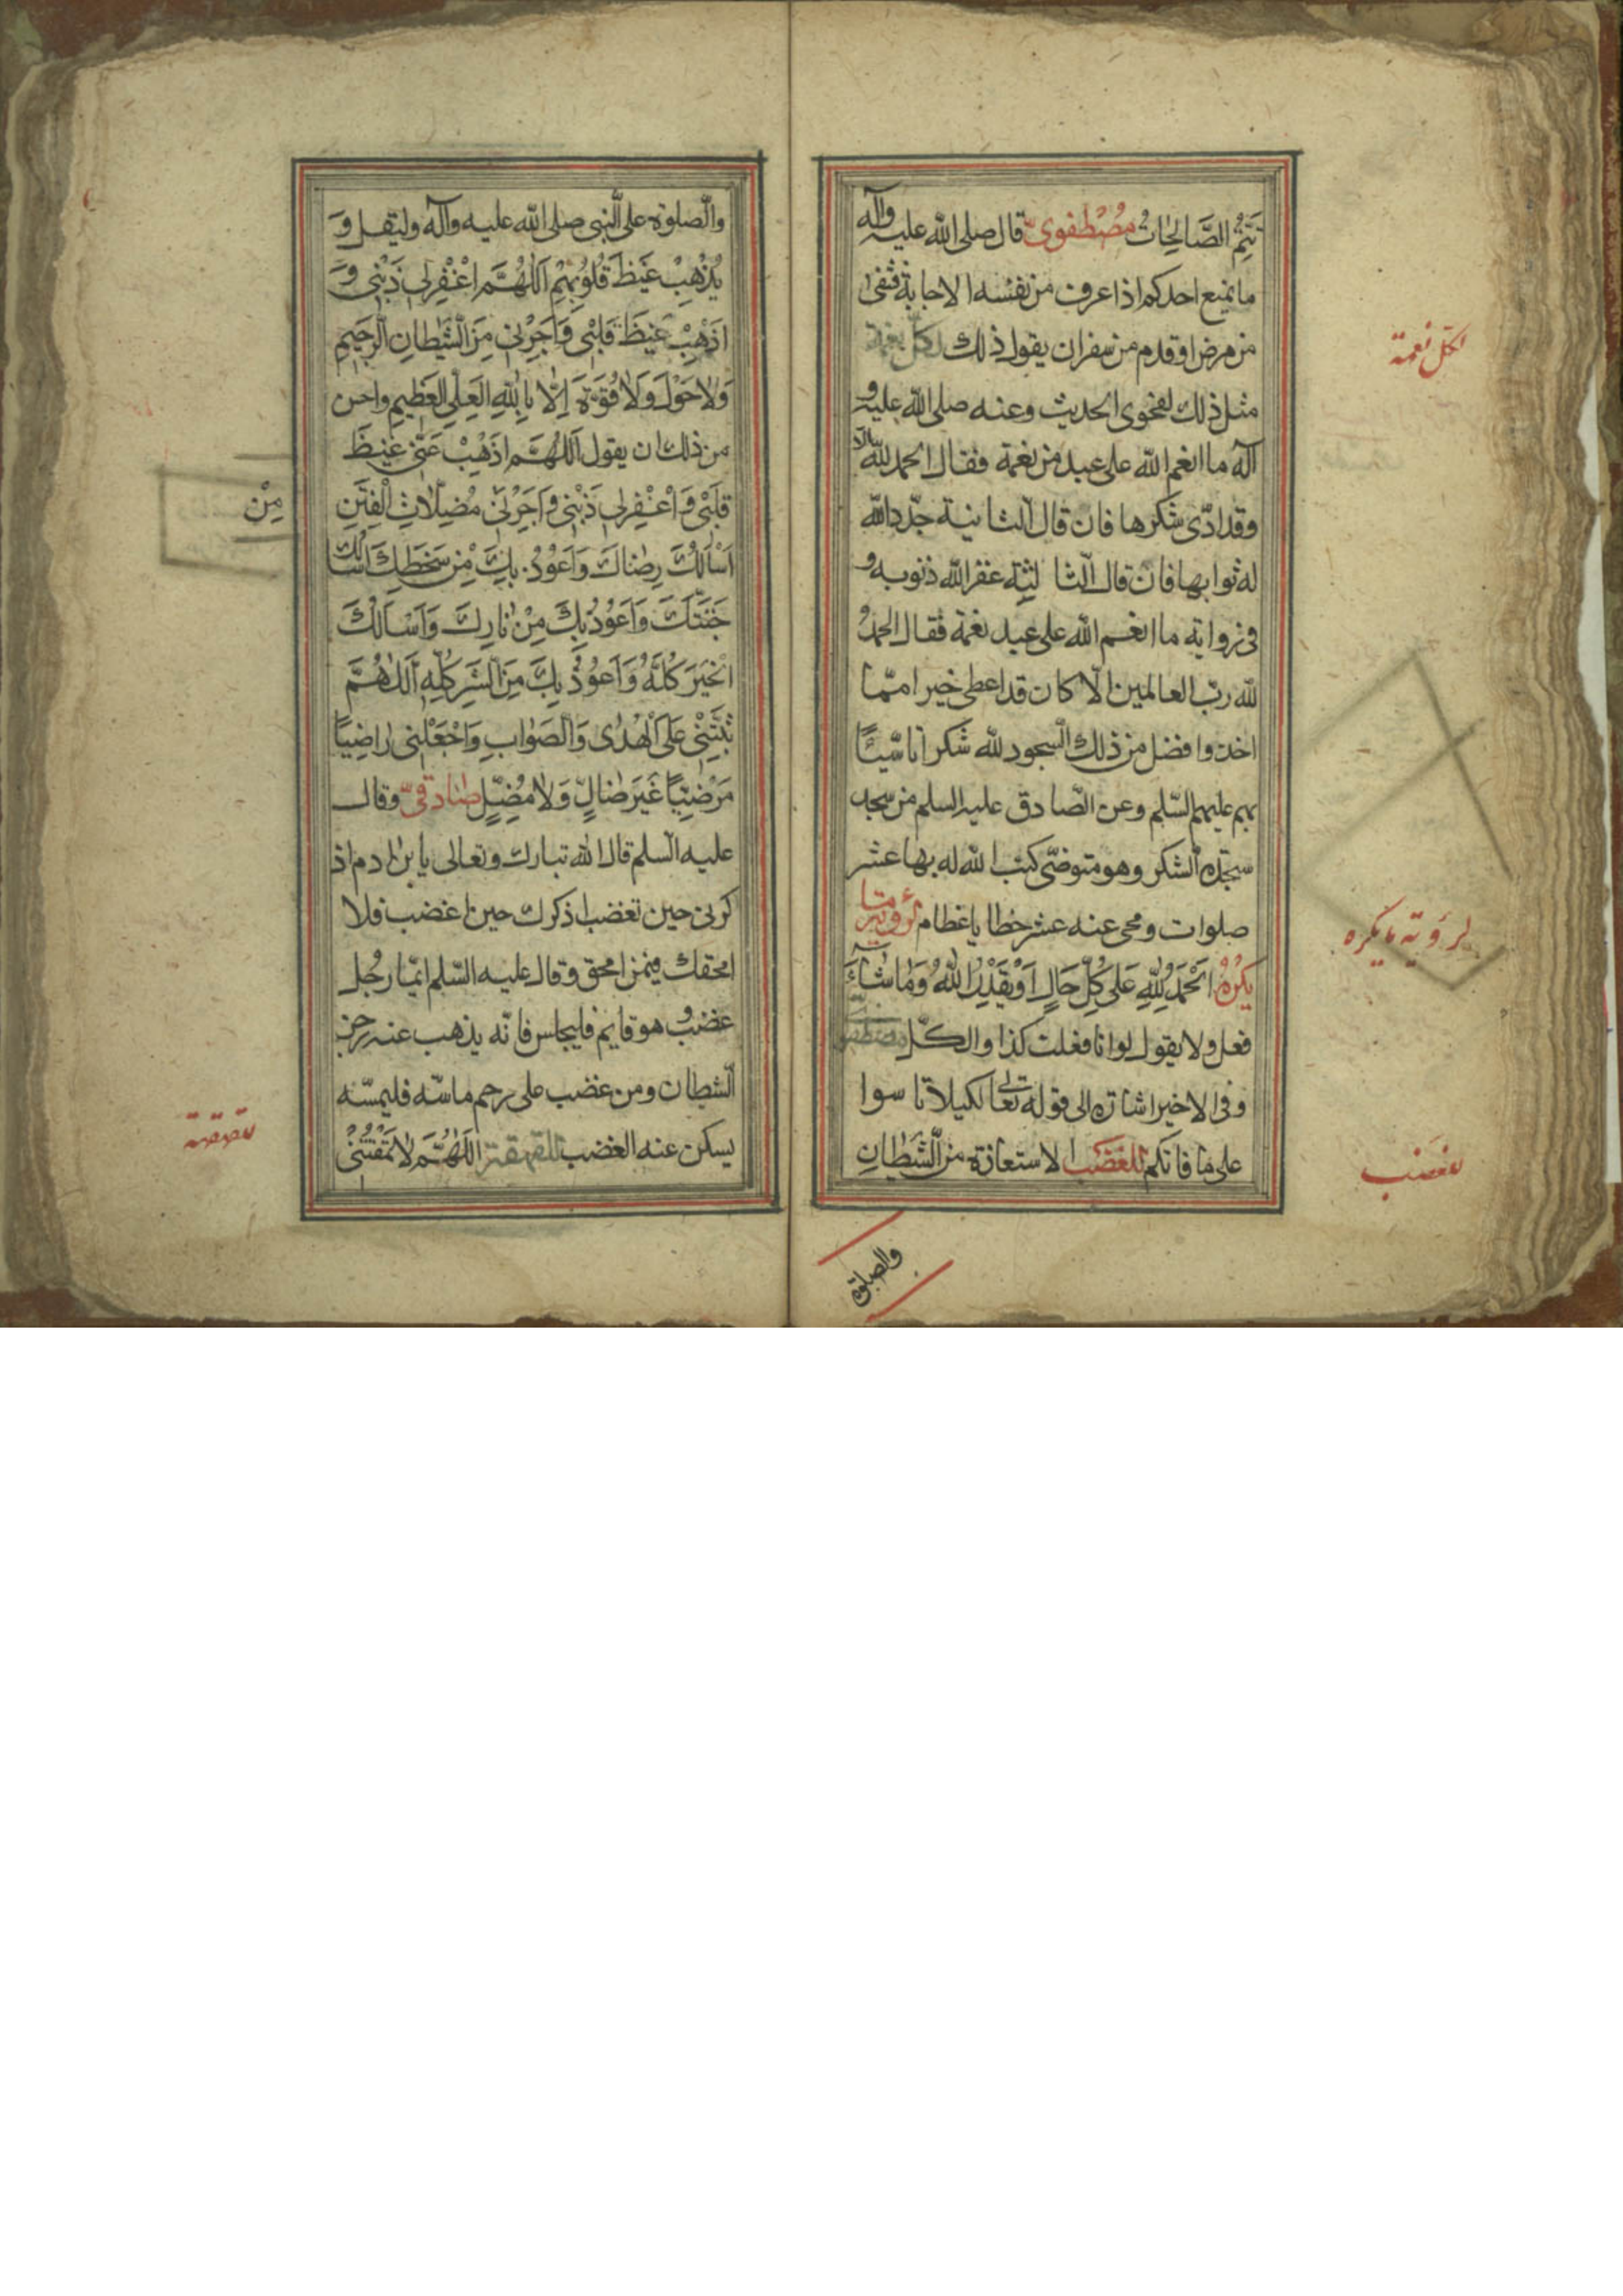 تَتِمُّ الصَّالِحَاتُ مُصْطَفَوِیّ قال صلی الله علیه وآله
ما یمنع احدکم اذا عرف من نفسه الاجابة فشفی
من مرض او قدم من سفر ان یقول ذلك لکلّ نعمة
مثل ذلك لفحوی الحدیث وعنه صلی الله علیه و
آله ما انعم الله علی عبد من نعمة فقال الحمد لله الا
وقد ادّی شکرها فان قال الثانیة جدّد الله
له ثوابها فان قال الثالثة غفر الله ذنوبه و
فی روایة ما انعم الله علی عبد نعمة فقال الحمدُ
لله ربّ العالمین الّا کان قد اعطی خیرا ممّا
اخذ وافضل من ذلك السجود لله شکرا تاسّیًا
بهم علیهم السّلم وعن الصّادق علیه السلم من سجد
سجدة الشکر وهو متوضّی کتب الله له بها عشر
صلوات ومحی عنه عشر خطایا عظام لرؤیة ما
یَکْرَهُ اَلْحَمْدُ لِلّٰهِ عَلٰی کُلِّ حَالٍ اَوْ بِقَدَرِ اللّٰهُ وَمٰا شٰاءَ
فعل ولا یقول لو انا فعلت کذا والکلّ مصطفوی
وفی الاخیر اشارة الی قوله تعالی لکیلا تاسوا
علی ما فاتکم للغَضَب الاستعاذة من الشّیطانِ
والصلوة
لکلّ نعمة
لرؤیة ما یکره
للغضب
والصلوة علی النّبی صلی الله علیه وآله ولیقل وَ
یُذْهِبْ غَیْظَ قُلُوبِهِمْ اَللّٰهُمَّ اغْفِرْلِی ذَنْبِی وَ
اَذْهِبْ غَیْظَ قَلْبِی وَاَجِرْنِی مِنَ الشَّیْطٰانِ الرَّجِیمِ
وَلاٰ حَوْلَ وَلاٰ قُوَّةَ اِلاّٰ بِاللّٰهِ الْعَلِیِّ الْعَظِیمِ واحسن
من ذلك ان یقول اَللّٰهُمَّ اذْهِبْ عَنِّی غَیْظَ
قَلْبِی وَاغْفِرْلِی ذَنْبِی وَاَجِرْنِی مُضِلاّٰتِ الْفِتَنِ
اَسْاَلُكَ رِضٰاكَ وَاَعُوذُ بِكَ مِنْ سَخَطِكَ اَسْاَلُكَ
جَنَّتَكَ وَاَعُوذُ بِكَ مِنْ نٰارِكَ وَاَسْاَلُكَ
الْخَیْرَ کُلَّهُ وَاَعُوذُ بِكَ مِنَ الشَّرِّ کُلِّهِ اَللّٰهُمَّ
ثَبِّتْنِی عَلَی الْهُدٰی وَالصَّوٰابِ وَاجْعَلْنِی رٰاضِیًا
مَرْضِیًّا غَیْرَ ضٰالٍّ وَلاٰ مُضِلٍّ صٰادِقیّ وقال
علیه السلم قال الله تبارك وتعالی یا بن ادم اذ
کرنی حین تغضب اذکرك حین اغضب فلا
امحقك فیمن امحق وقال علیه السّلم ایّما رجل
غضب وهو قایم فلیجلس فانّه یذهب عنه رجز
الشیطان ومن غضب علی رحم ماسّه فلیمسّه
یسکن عنه الغضب للقهقهة اَللّٰهُمَّ لاٰ تَمْقُتْنِی
مِنْ
للقهقهة